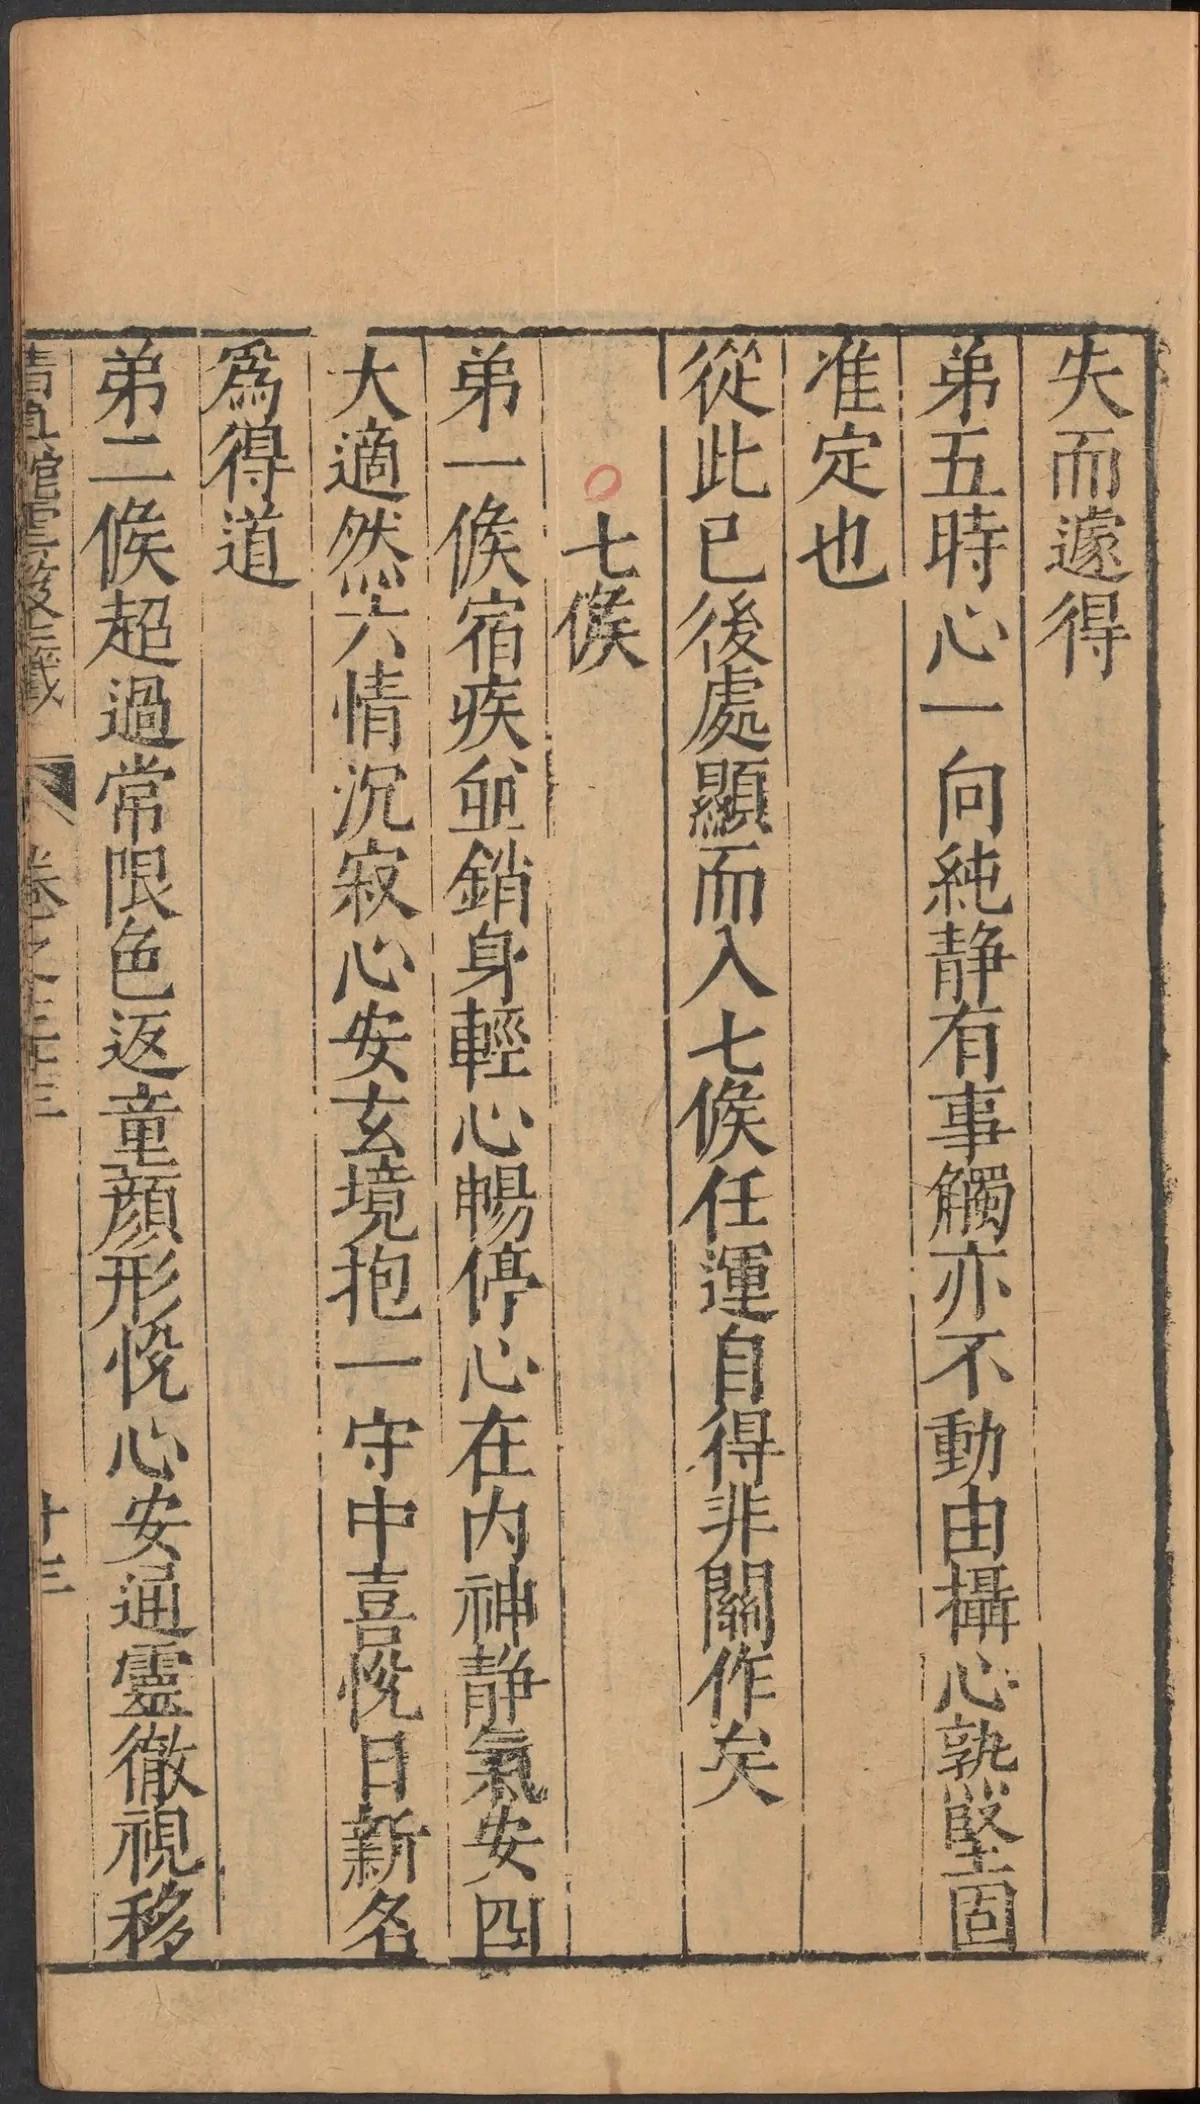 失而遽得
弟五時心一向純静有事觸亦不動由攝心熟堅固
准定也
從此已後處顯而入七候任運自得非關作矣
○七候
弟一候宿疾並銷身輕心暢停心在内神静氣安四
大適然六情沉寂心安玄境抱一守中喜悅日新名
爲得道
弟二候超過常限色返童顏形悅心安通靈徹視移
清真館雲笈七籤 卷之三十三 十三